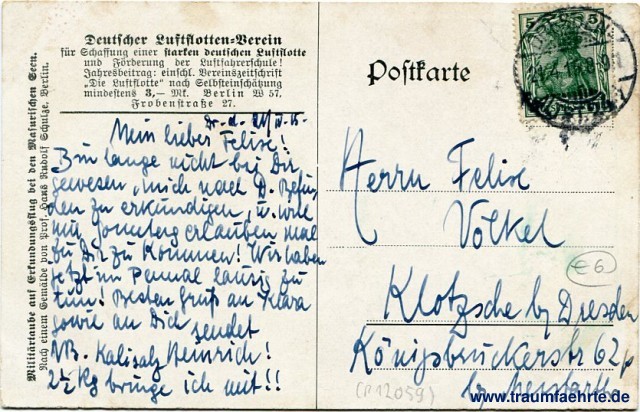 Deutscher Luftflotten-Verein
für Schaffung einer starken deutschen Luftflotte
und Förderung der Luftfahrerschule!
Jahresbeitrag: einschl. Vereinszeitschrift
"Die Luftflotte" nach Selbsteinschätzung
mindestens 3,— Mk. Berlin W 57,
Frobenstraße 27.
Postkarte
Militärtaube auf Erkundungsflug bei den Masurischen Seen.
Nach einem Gemälde von Prof. Hans Rudolf Schulze, Berlin.
Dr.-d. 21/IV.15.
Mein lieber Felix!
Bin lange nicht bei Dir
gewesen, mich nach D. Befin-
den zu erkundigen, u. will
mir Sonntag erlauben mal
zu Dir zu kommen! Wir haben
jetzt im Pennal zu
tun! Besten Gruß an Klara
sowie an Dich sendet
Heinrich!
NB. Kalisalz
2½ Kg bringe ich mit!!
Herrn Felix
Völkel
Klotzsche by Dresden
Königsbrückerstr 62
€6
(P12059)
www.traumfaehrte.de